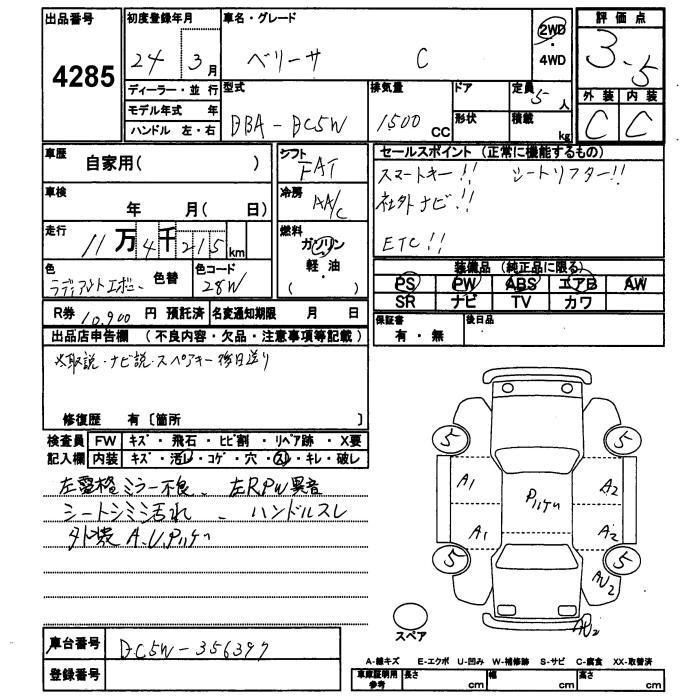 出品番号 4285
初度登録年月 24年 3月
車名・グレード ベリーサ C
2WD
4WD
評価点 3.5
外装 内装
C C
ディーラー・並行
モデル年式 年
ハンドル 左・右
型式 DBA-DC5W
排気量 1500 CC
ドア
形状
定員 5人
積載 kg
車歴 自家用( )
車検 年 月( 日)
走行 11万4千215km
色 ラディアントエボニー 色替
色コード 28W
シフト FAT
冷房 AA/C
燃料 ガソリン
軽・油
( )
セールスポイント(正常に機能するもの)
スマートキー!! シートリフター!!
社外ナビ!!
ETC!!
装備品(純正品に限る)
PS PW ABS エアB AW
SR ナビ TV カワ
R券 10,900円 預託済 名変通知期限 月 日
保証書 有・無
後日品
出品店申告欄(不良内容・欠品・注意事項等記載)
※取説・ナビ説・スペアキー後日送り
修復歴 有〔箇所 〕
検査員記入欄
FW キズ・飛石・ヒビ割・リペア跡・X要
内装 キズ・汚レ・コゲ・穴・スレ・キレ・破レ
左電格ミラー不良、左RPW異音
シートシミ汚れ ハンドルスレ
外装 A.U.Pハゲ
5 5
A1 A2
Pハゲ
A1 A2
5 5
AU2
AU2
スペア
A-線キズ E-エクボ U-凹み W-補修跡 S-サビ C-腐食 XX-取替済
車台番号 DC5W-356397
登録番号
車庫証明用参考 長さ cm 幅 cm 高さ cm